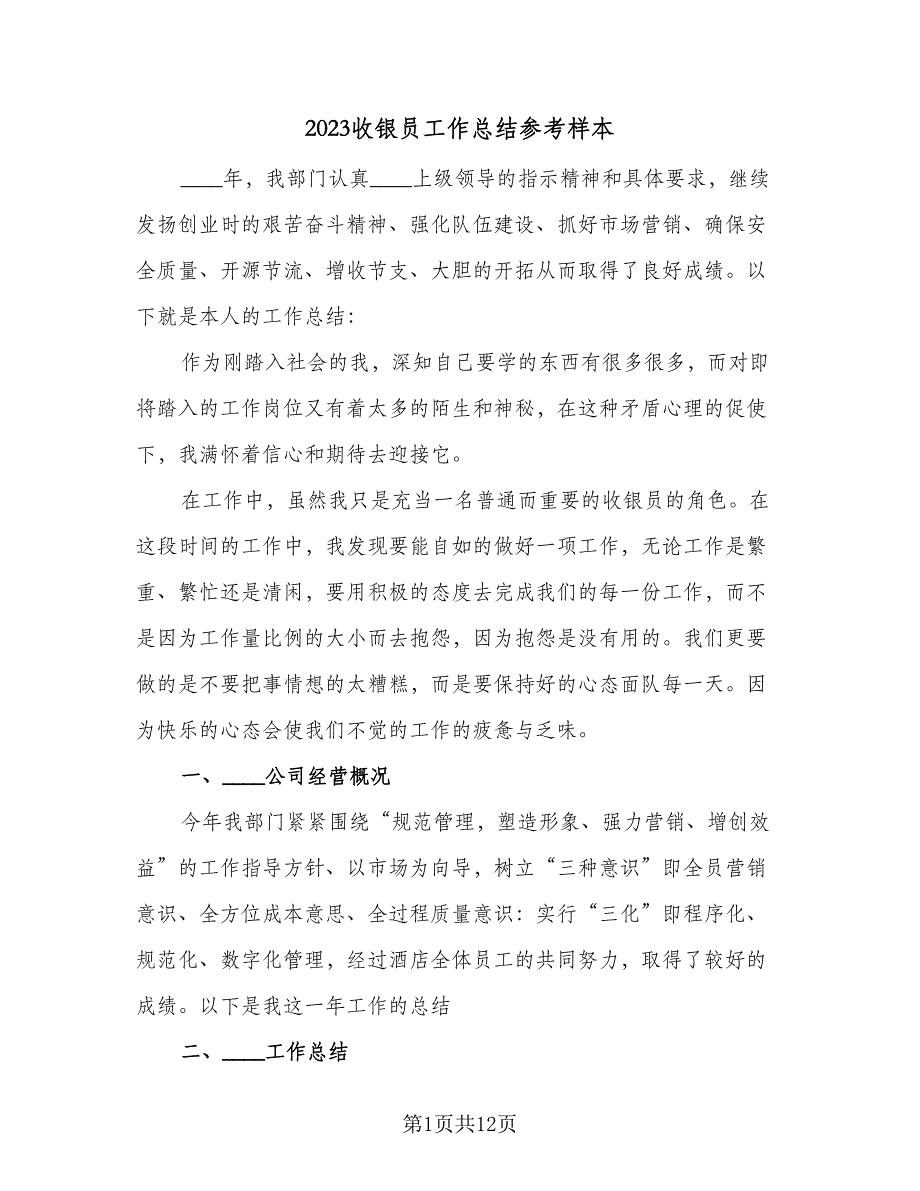 2023收银员工作总结参考样本
____年，我部门认真____上级领导的指示精神和具体要求，继续
发扬创业时的艰苦奋斗精神、强化队伍建设、抓好市场营销、确保安
全质量、开源节流、增收节支、大胆的开拓从而取得了良好成绩。以
下就是本人的工作总结：
作为刚踏入社会的我，深知自己要学的东西有很多很多，而对即
将踏入的工作岗位又有着太多的陌生和神秘，在这种矛盾心理的促使
下，我满怀着信心和期待去迎接它。
在工作中，虽然我只是充当一名普通而重要的收银员的角色。在
这段时间的工作中，我发现要能自如的做好一项工作，无论工作是繁
重、繁忙还是清闲，要用积极的态度去完成我们的每一份工作，而不
是因为工作量比例的大小而去抱怨，因为抱怨是没有用的。我们更要
做的是不要把事情想的太糟糕，而是要保持好的心态面队每一天。因
为快乐的心态会使我们不觉的工作的疲惫与乏味。
一、____公司经营概况
今年我部门紧紧围绕“规范管理，塑造形象、强力营销、增创效
益”的工作指导方针、以市场为向导，树立“三种意识”即全员营销
意识、全方位成本意思、全过程质量意识：实行“三化”即程序化、
规范化、数字化管理，经过酒店全体员工的共同努力，取得了较好的
成绩。以下是我这一年工作的总结
二、____工作总结
第1页共12页